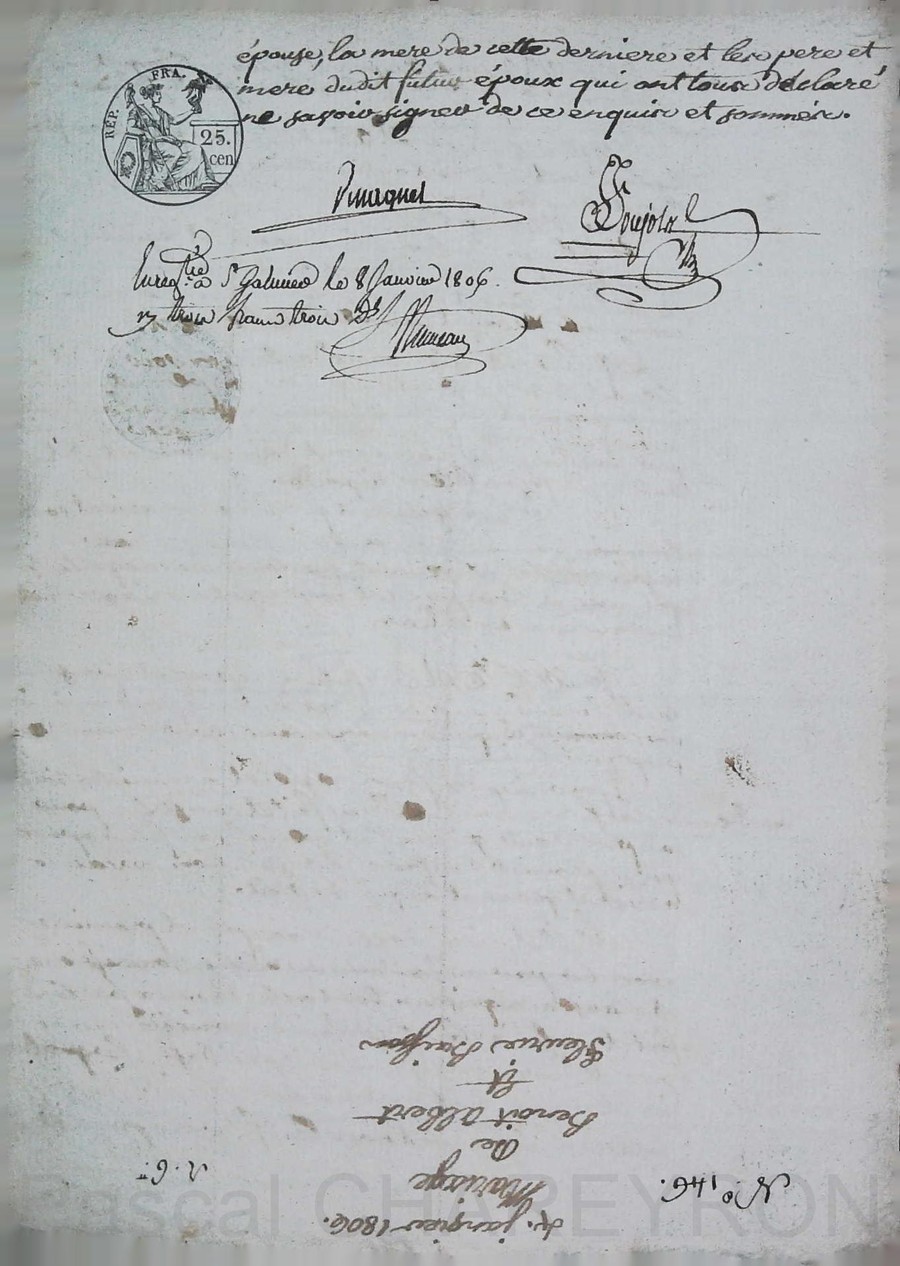 épouse, la mere de cette derniere et les pere et
mere dudit futur époux qui ont tous déclaré
ne savoir signer de ce enquis et sommés.
REP. FRA.
25.
cen
Enregtré à St Galmier le 8 Janvier 1806.
trois francs trois
4. janvier 1806.
Mariage
De
Benoit albert
Et
Fleurie
No. 146.
R. 6.
Pascal CHAPEYRON